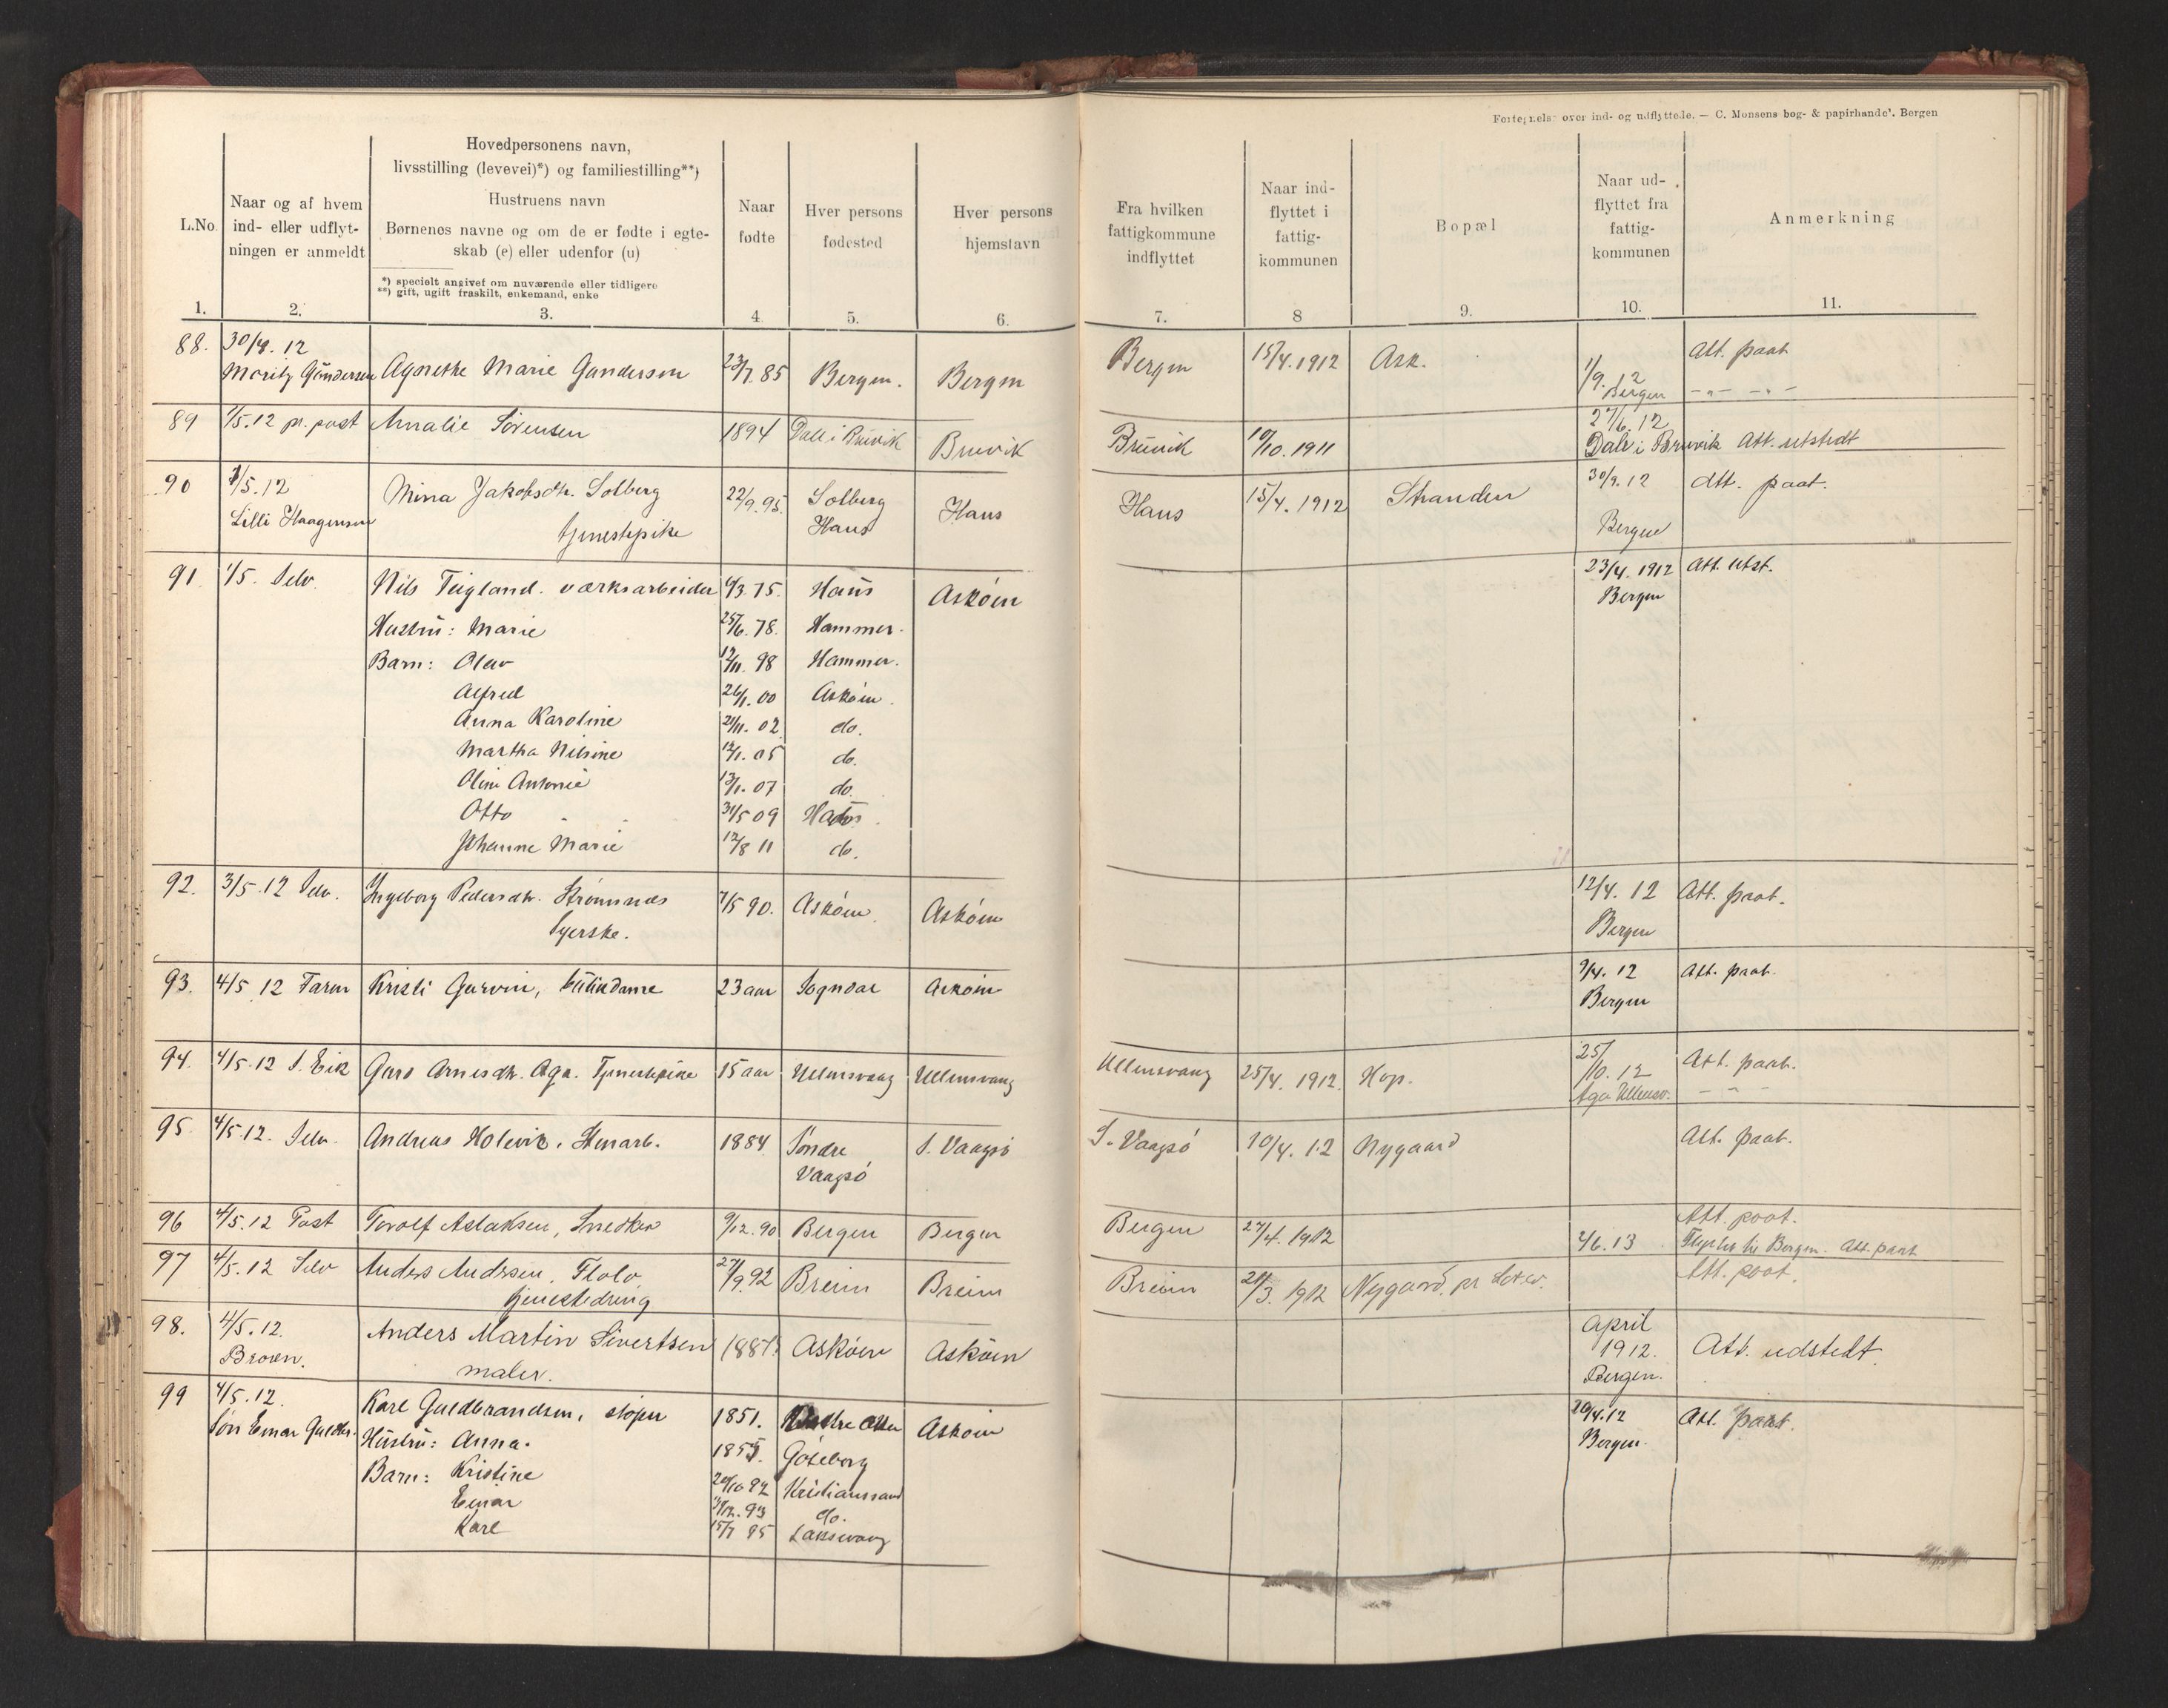 Fortegnelse over ind- og udflyttede. — C. Monsens bog- & papirhandel. Bergen
L.No.
Naar og af hvem
ind- eller udflyt-
ningen er anmeldt
Hovedpersonens navn,
livsstilling (levevei)*) og familiestilling**)
Hustruens navn
Børnenes navne og om de er fødte i egte-
skab (e) eller udenfor (u)
*) specielt angivet om nuværende eller tidligere
**) gift, ugift fraskilt, enkemand, enke
Naar
fødte
Hver persons
fødested
Hver persons
hjemstavn
Fra hvilken
fattigkommune
indflyttet
Naar ind-
flyttet i
fattig-
kommunen
Bopæl
Naar ud-
flyttet fra
fattig-
kommunen
Anmerkning
1. 2. 3. 4. 5. 6. 7. 8 9. 10. 11.
88. 30/4. 12 Att. paat
Moritz Gundersen Agnethe Marie Gundersen 23/7. 85 Bergen. Bergen Bergen 15/4. 1912 Ask. 1/9. 12
Bergen -"- -"-
89 1/5. 12 pr. post Amalie Sörensen 1894 Dale i Bruvik Bruvik Bruvik 10/10. 1911 27/6. 12
Dale i Bruvik Att. utstedt
90 1/5. 12 Nina Jakobsdtr. Solberg 22/9. 95. Solberg Haus Haus 15/4. 1912 Stranden 30/9. 12 Att. paat.
Lilli Haagensen tjenestepike Haus Bergen
91. 1/5. Selv Nils Teigland. værksarbeider 4/3. 75. Haus Askøen 23/4. 1912 Att. utst.
Hustru: Marie 25/6. 78. Hammer. Bergen
Barn: Olav 12/11. 98 Hammer.
Alfred 26/1. 00 Askøen.
Anna Karoline 21/11. 02 do.
Martha Nilsine 12/1. 05 do.
Oline Antonie 13/1. 07 do.
Otto 31/5 09 Haus.
Johanne Marie 12/8 11 do.
92. 3/5. 12 Selv. Ingeborg Pedersdtr. Strømsnes 7/5 90. Askøen. Askøen 12/4. 12 Att. paat.
Syerske. Bergen
93. 4/5 12 Faren Kristi Gurvin, 23 aar Sogndal Askøen 9/4. 12 Att. paat.
Bergen
94. 4/5. 12 S. Eik Guro Arnesdtr. Aga. Tjenestepike 15 aar Ullensvang Ullensvang Ullensvang 25/4. 1912. Hop. 25/10. 12 Att. paat.
Aga Ullensv. - " -
95. 4/5. 12. Selv. Andreas Holevik. Stenarb. 1884 Söndre S. Vaagsö S. Vaagsö 10/4. 12 Nygaard Att. paat.
Vaagsö
96 4/5. 12 Post Torolf Aslaksen, Snedker 9/12. 90 Bergen Bergen Bergen 27/4. 1912 Att. paat.
4/6. 13 Flyttet til Bergen. Att. paat
97 4/5. 12 Selv Anders Andersen, Flolo 27/9. 92 Breim Breim Breim 21/3. 1912 Nygaard, pr Att. paat.
tjenestedreng
98. 4/5. 12. Anders Martin Sivertsen 1887. Askøen Askøen April
Broren. maler. 1912. Att. udstedt.
Bergen.
99 4/5. 12. Karl Guldbrandsen, støper 1851. Askøen 20/4. 12 Att. paat.
Søn Einar Guldbr. Hustru: Anna. 1855. Göteborg Bergen.
Barn: Kristine 20/10 92 Kristianssand
Einar 93 do.
Karl 15/7 95 Laksevaag